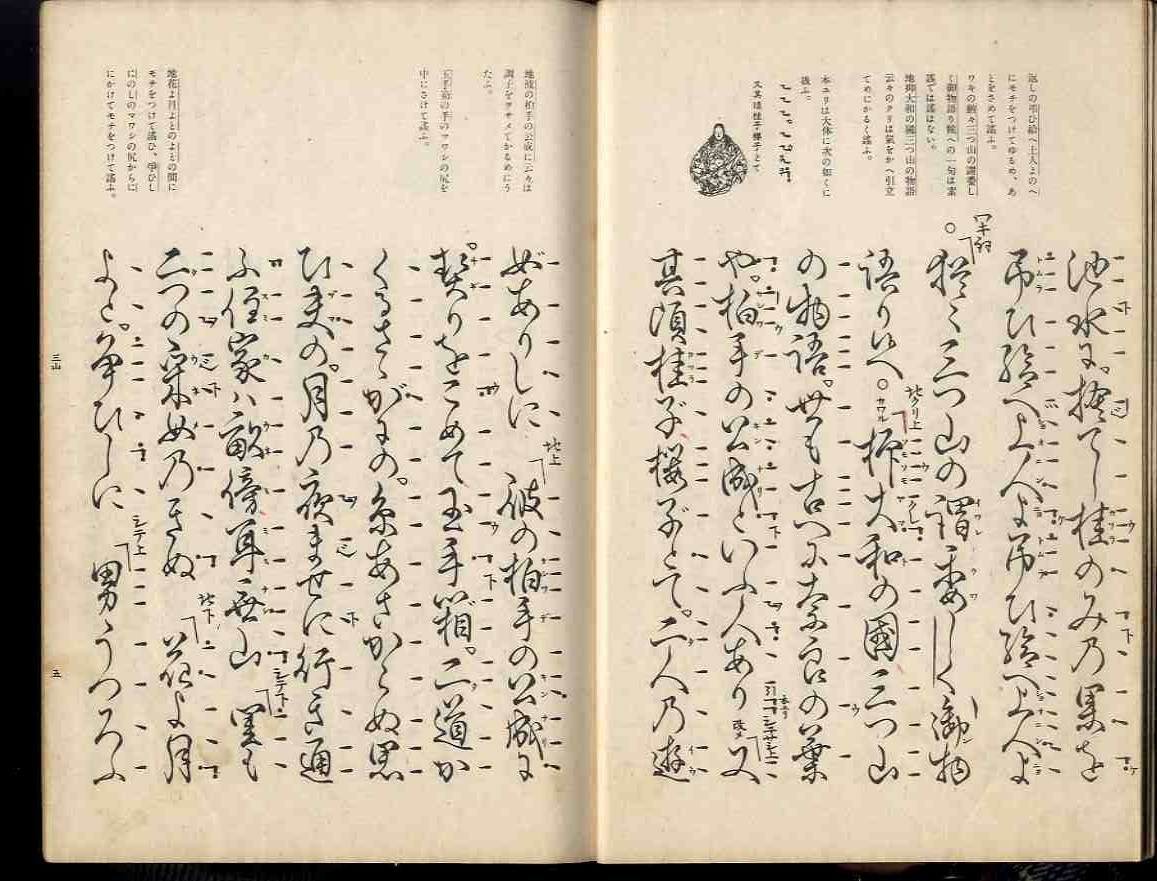 返しの弔ひ給へ上人よのへ
にモチをつけてゆるめ、あ
とをさめて謡ふ。
ワキの猶々三つ山の謂委し
く御物語り候への一句は素
謡では謡はない。
地抑大和の國三つ山の物語
云々のクリは氣をかへ引立
てめにかるく謡ふ。
本ユリは大体に次の如くに
扱ふ。
又其頃桂子櫻子とて
池水に。捨てし桂のみ乃果を
弔ひ給へ上人よ弔ひ給へ上人よ
ワキ詞
猶々三つ山の謂委しく御物
語り候へ
地クリ上
カワル
抑大和の國三つ山
の物語。世も古へに奈良の葉
や。柏手の公成といふ人あり
本ユリ
シテサシ上
又
其頃桂子櫻子とて。二人乃遊
地彼の柏手の公成に云々は
調子をヲサメてかるめにう
たふ。
玉手箱の手のマワシの尻を
中にさけて謡ふ。
地花よ月よとのよとの間に
モチをつけて謡ひ、爭ひし
にのしのマワシの尻からに
にかけてモチをつけて謡ふ。
女ありしに
地上
彼の柏手の公成に
契りをこめて玉手箱。二道か
くるさゝがにの。糸あさからぬ思
ひ夫の。月乃夜ませに行き通
ふ住家ハ畝傍耳無山
シテ下
里も
二つの采女乃きぬ
地下
花よ月
よと。爭ひしに
シテ上
男うつろふ
三山
五